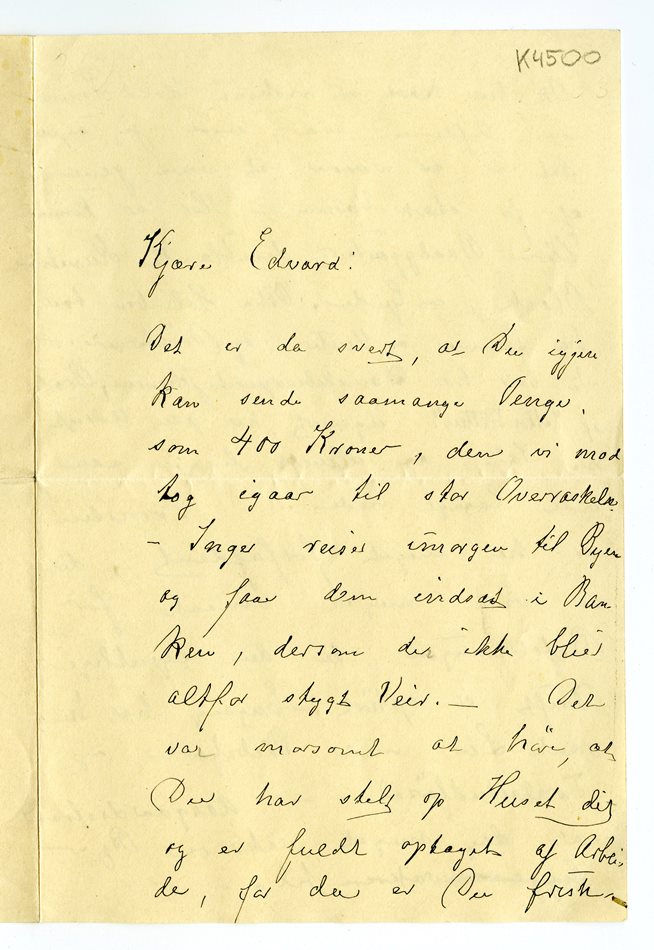 K4500
Kjære Edvard!
Det er da svert, at Du igjen
kan sende saamange Penge,
som 400 Kroner, den vi mod
tog igaar til stor Overraskelse.
– Inger reiser imorgen til Byen
og faar dem indsat i Ban
ken, dersom der ikke blir
altfor stygt Veir. – Det
var morsomt at høre, at
Du har stelt op Huset dit
og er fuldt optaget af Arbei-
de, for da er Du frisk. –